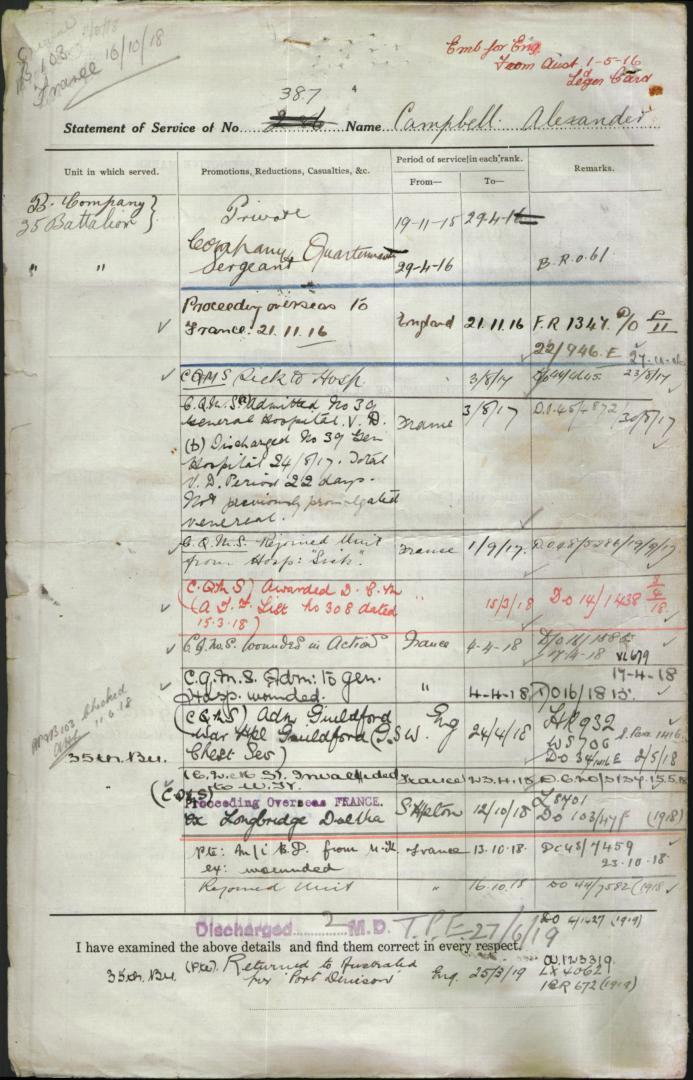 103
France 16/10/18
Emb for Eng
From Aust 1-5-16
Leger Card
387
Statement of Service of No. Name Campbell Alexander
Unit in which served.
Promotions, Reductions, Casualties, &c.
Period of service in each rank.
From—
To—
Remarks.
B. Company
35 Battalion
Private
19-11-15
29-4-16
" "
Company Quartermaster
Sergeant
29-4-16
B.R.O. 61
Proceeding overseas to
France: 21.11.16
England
21.11.16
F.R 1347
22/946. E
27-11-16
CQMS Sick to Hosp
3/8/17
23/8/17
C.Q.M.S. (a) Admitted No 39
General Hospital V.D.
(b) Discharged No 39 Gen
Hospital 24/8/17. Total
V.D. Period 22 days.
Not previously promulgated
venereal.
France
3/8/17
D.O. 45/4872
30/8/17
C.Q.M.S. Rejoined Unit
from Hosp: "Sick".
France
1/9/17.
DO 48/5286/19/9/17
(C.Q.M.S) Awarded D.C.M
(A.I.F. List No 308 dated
15.3.18)
"
15/3/18
DO 14/1438
C.Q.M.S. wounded in Action
France
4-4-18
17-4-18
C.Q.M.S. Adm: to Gen.
Hosp. wounded.
"
4-4-18
DO16/1815
17-4-18
(CQMS) Adm Guildford
War Hpl Guildford (G.S.W.
Chest Sev)
Eng
24/4/18
HR932
WS706
2/5/18
B103 checked
11.6.18
35th Bn.
(C.Q.M.S.) Invalided
to U.K.
France
23.4.18
15.5.18
(CQMS)
Proceeding Overseas FRANCE.
ex Longbridge Deverill
S'Hpton
12/10/18
L8701
DO 103/47F (1918)
Pte: M/i B.D. from U.K.
ex: wounded
France
13.10.18.
DO 43/7459
23.10.18.
Rejoined Unit
"
16.10.18
DO 44/7582 (1918
Discharged 2 M.D. T.P.E. 27/6/19
DO 41-27 (1919)
I have examined the above details and find them correct in every respect.
35th Bn.
(Pte). Returned to Australia
per 'Port Denison'
Eng.
25/3/19
A.123319.
LX4062
1CR 672 (1919)